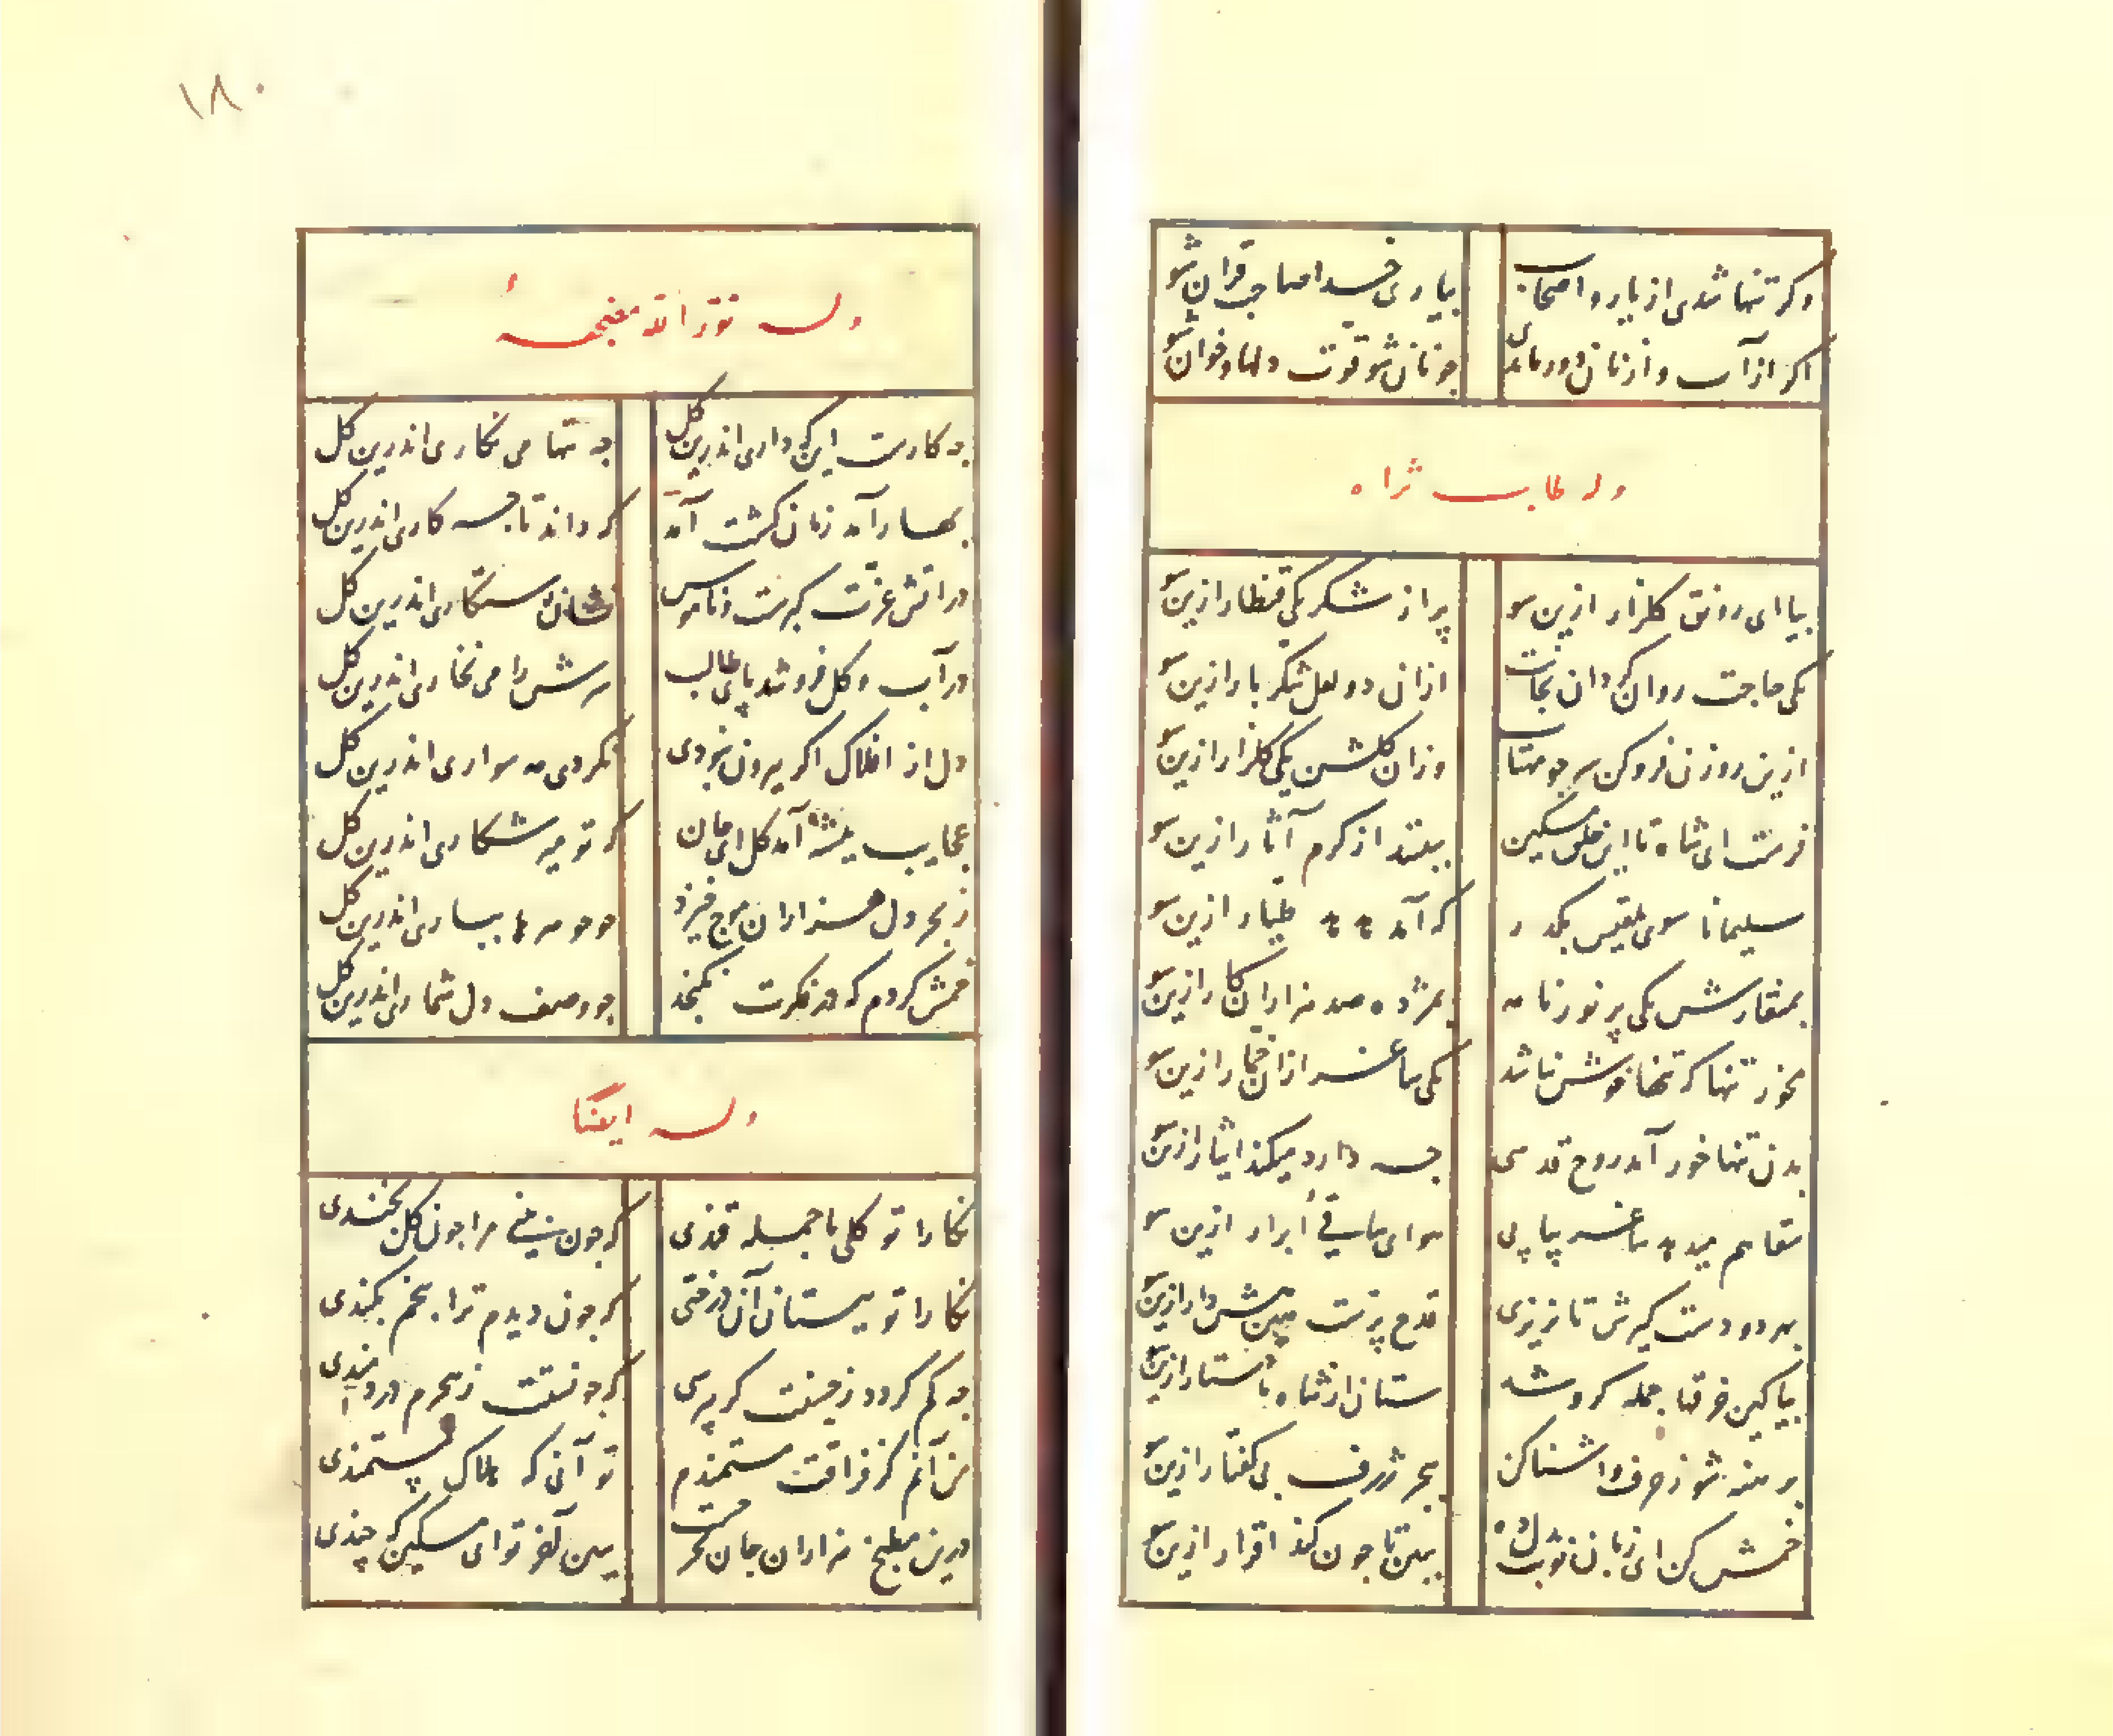 وکر تنها شدی از یار و اصحاب بیاری خدا صاحب قران شو
اکر از آب و از نان دور ماندی جو نان شو قوت دلها و خوان شو
وله طاب ثراه
بیا ای رونق کلزار ازین سو پر از شکر یکی قنطار ازین سو
یکی حاجت روان کردان نجات ازان دو لعل شکر بار ازین سو
ازین روزن فرو کن سر جو مهتاب وزان کلشن یکی کلزار ازین سو
فرست ای شاه تا این خلق مسکین ببینند از کرم آثار ازین سو
سلیمانا سوی بلقیس بکذر که آمد طیار ازین سو
بمنقارش یکی پر نور نامه بمژده صد هزاران کار ازین سو
مخور تنها که تنها خوش نباشد یکی ساغر ازان خمار ازین سو
بدن تنها خور آمد روح قدسی جه دارد میکند ایثار ازین سو
سقاهم میدهد ساغر پیاپی هوای ساقی ابرار ازین سو
بهر دو دست کیرش تا نریزی قدح پرست هین هشدار ازین سو
بیا کین خرقها جمله کرو شد ستان از شاه ما دستار ازین سو
برهنه شو ز حرف و اشنا کن ببحر ژرف بی کفتار ازین سو
خمش کن ای زبان نوبت بدل ده ببین تا جون کند اقرار ازین سو
۱۸۰
وله نور الله مضجعه
جه کارست این که داری اندرین کل جه تنها می نکاری اندرین کل
بهار آمد زمان کشت آمد که داند تا جه کاری اندرین کل
در اتش عزت کبرست و ناموس نشانش ستکاری اندرین کل
در آب و کل فرو شد پای طالب سرش را می نخاری اندرین کل
دل از افلاک اکر بیرون نبودی نکردی مه سواری اندرین کل
عجایب بیشه آمد کل ای جان که تو میر شکاری اندرین کل
ز بحر دل هزاران موج خیزد جو جوهرها بیاری اندرین کل
خمش کردم که در فکرت نکنجد جو وصف دل شماری اندرین کل
وله ایضا
نکارا تو کلی یا جمله قندی که جون بینی مرا جون کل بخندی
نکارا تو ببستان آن درختی که جون دیدم ترا بیخم بکندی
جه کم کردد ز حسنت کر بپرسی که جونستت ز هجرم دردمندی
من آنم کز فراقت مستمندم تو آنی که هلاک مستمندی
درین مطبخ هزاران جان بخرجست ببین آخر تو ای مسکین که چندی